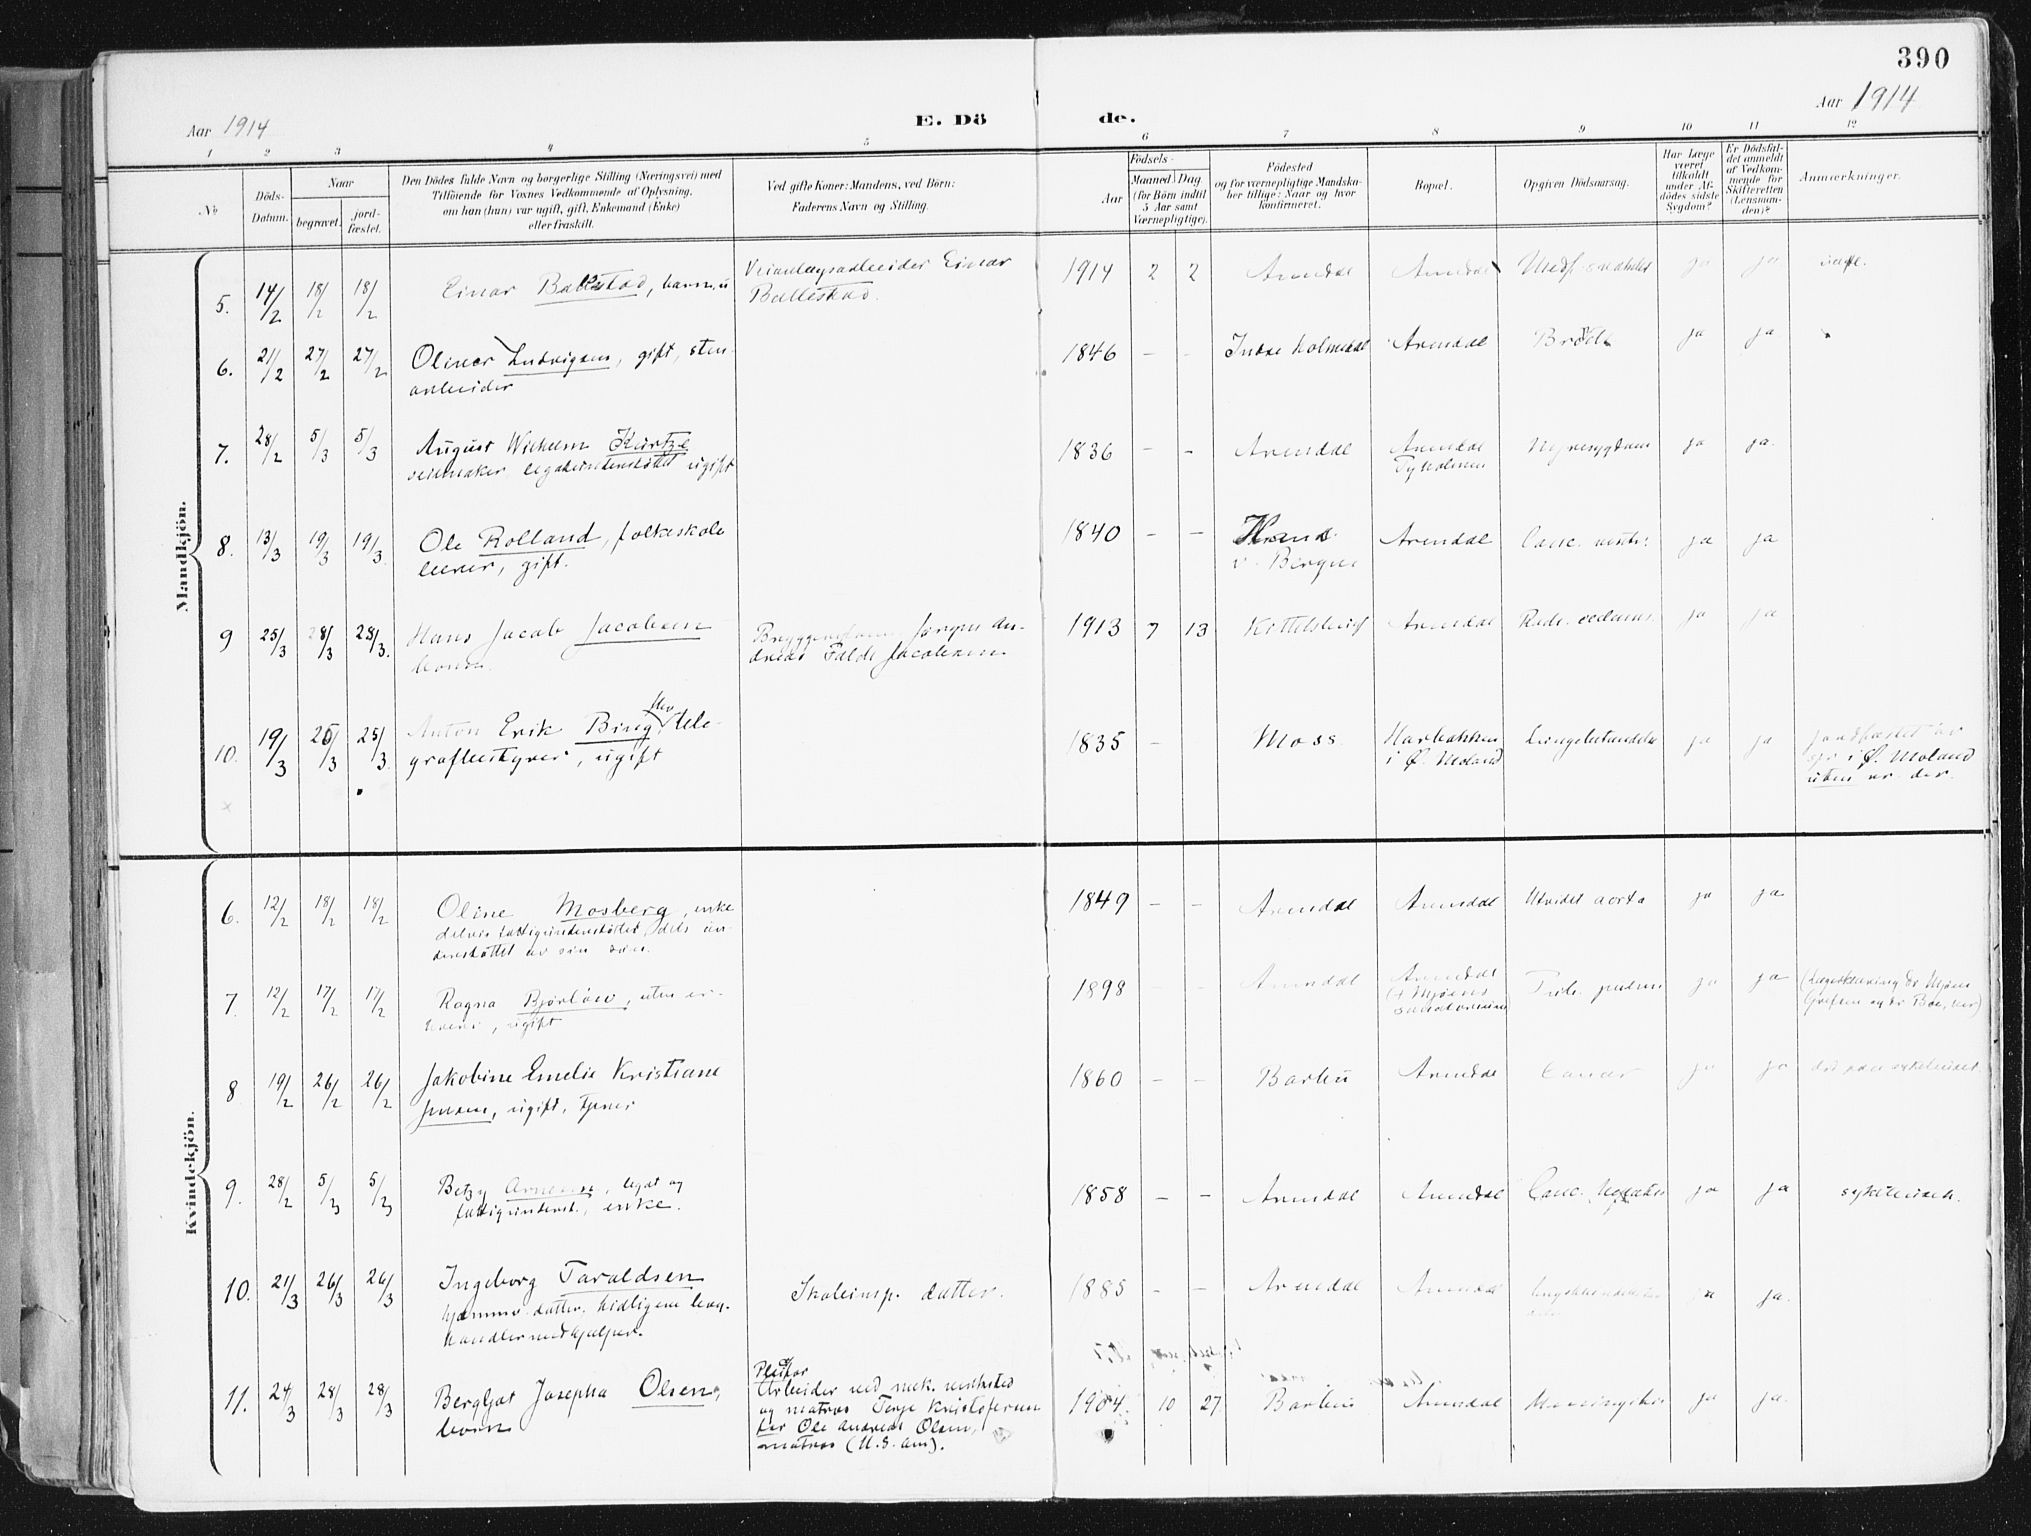 390
Aar 1914
E. Dö
de.
Aar 1914
1 2 3 4 5 6 7 8 9 10 11 12
№
Döds-Datum.
Naar
begravet.
jord-fæstet.
Den Dödes fulde Navn og borgerlige Stilling (Næringsvei) med
Tilföiende for Voxnes Vedkommende af Oplysning,
om han (hun) var ugift, gift, Enkemand (Enke)
eller fraskilt.
Ved gifte Koner: Mandens, ved Börn:
Faderens Navn og Stilling.
Födsels-
Aar
Maaned Dag
(for Börn indtil
5 Aar samt
Værnepligtige).
Födested
og for værnepligtige Mandska-
ber tillige: Naar og hvor
konfirmeret.
Bopæl.
Opgiven Dödsaarsag.
Har Læge
været
tilkaldt
under Af-
dödes sidste
Sygdom?
Er Dödsfal-
det anmeldt
af Vedkom-
mende for
Skifteretten
(Lensman-
den)?
Anmærkninger.
Mandkjön.
5. 14/2 18/2 18/2 Einar , barn, Veianlægsarbeider Einar 1914 2 2 Arendal Arendal ja ja
Ballestad.
6. 21/2 27/2 27/2 Olinar Ludvigsen, gift, sten- 1846 – – Indre Holmedal Arendal ja ja
arbeider
7. 28/2 5/3 5/3 August Wilhelm 1836 – – Arendal Arendal Nyresygdom ja ja.
seilmaker, legatunderstöttet ugift Tyholmen
8. 13/3 19/3 19/3 Ole Rolland, folkeskole 1840 – – Arendal Canc. ventr. ja ja
lærer, gift. v. Bergen
9 25/3 28/3 28/3. Hans Jacob Jacobsen Jörgen An- 1913 7 13 Kittelsbukt Arendal ja ja
barn. dreas Falck Jacobsen
10. 19/3 25/3 25/3. Anton Erik Bing, tele- 1835 – Moss Harbakken Lungebetændelse ja ja jordfæstet av
grafbestyrer, ugift i Ø. Moland spr. i Ø. Moland
uten
Kvindekjön.
6. 12/2 18/2 18/2 Oline Mosberg, enke 1849 – – Arendal Arendal Utvidet aorta ja ja
delvis fattigunderstöttet, dels un-
derstöttet av sin sön.
7. 12/2 17/2 17/2 Ragna Bjørløw, uten er- 1898 – – Arendal Arendal Tub. pulm ja ja
hverv, ugift (+ Mjøens
sanatorium)
8 19/2 26/2 26/2 Jakobine Emelie Kristiane 1860 – – Barbu Arendal Cancer ja ja død paa sykehuset
Jensen, ugift, tjener
9. 28/2 5/3 5/3 Betzy Arnesen, legat og 1858 – – Arendal Arendal Canc. ja ja sykehuset.
fattigunderst., enke.
10. 21/3 26/3 26/3 Ingeborg Taraldsen Skoleinsp. datter. 1885 – – Arendal Arendal ja ja.
hjemmev. datter, tidligere bog-
handlermedhjælper.
11. 24/3 28/3 28/3 Bergljot Josepha Olsen, Pleifar 1904 10 27 Barbu Arendal ja ja.
barn Arbeider ved mek. verksted
og matros Terje Kristofersen
Far Ole Andreas Olsen,
matros (U.S. am).